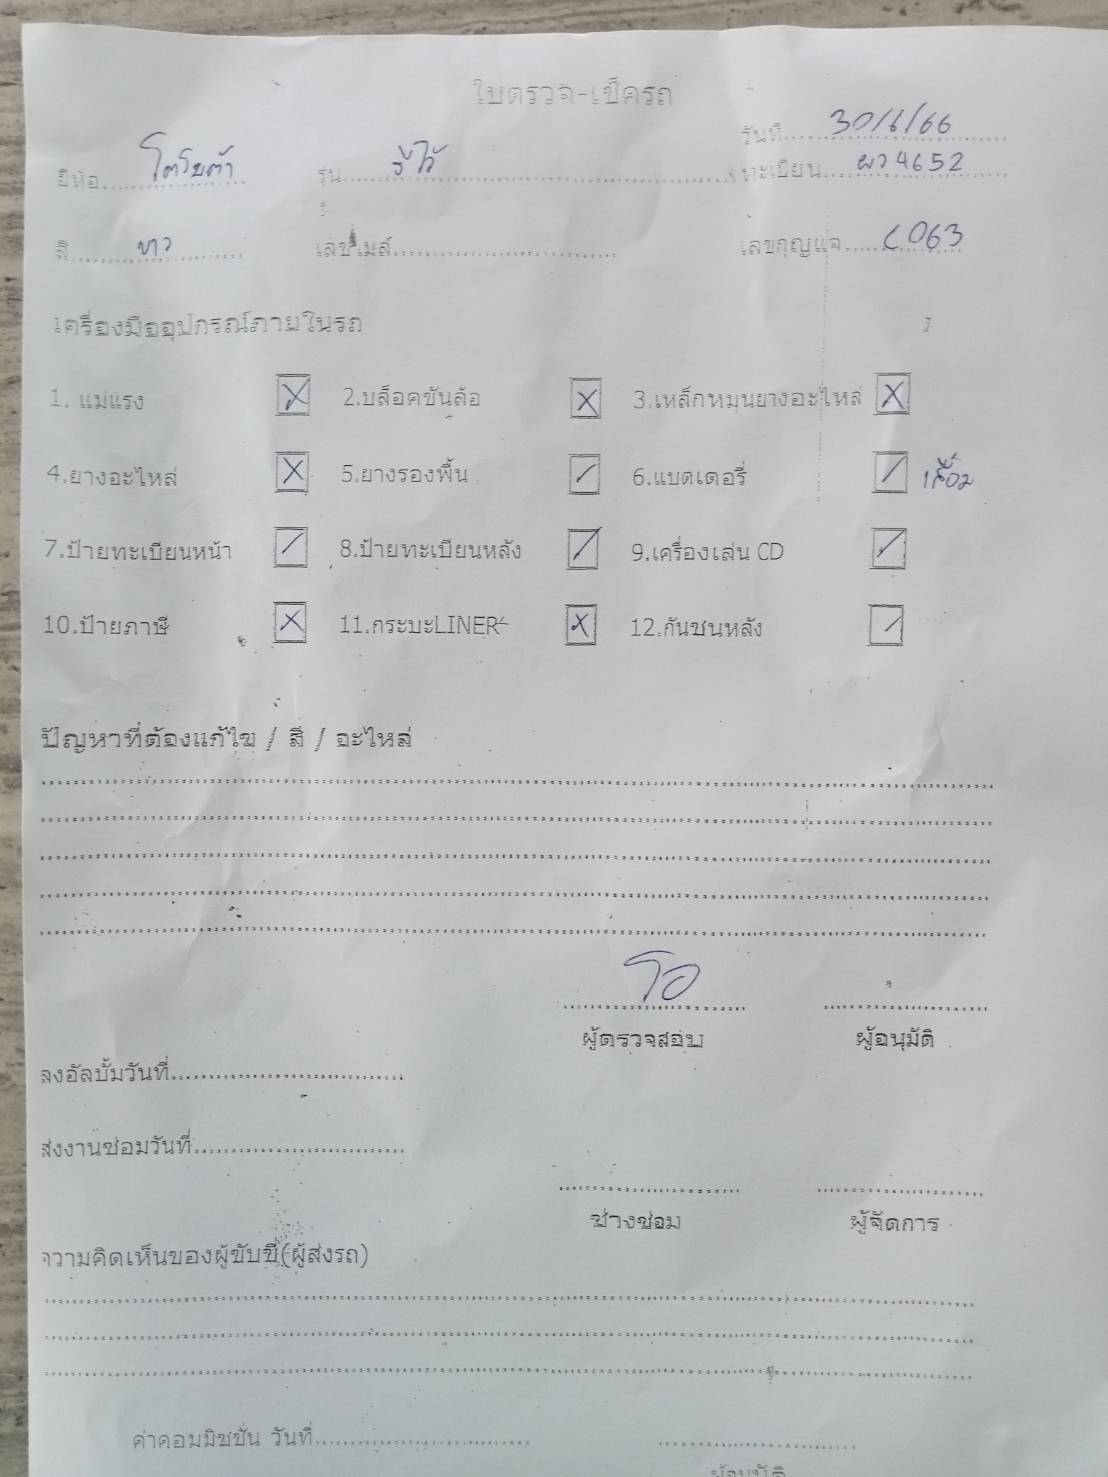 ใบตรวจ-เช็ครถ
วันที่ 30/6/66
ยี่ห้อ โตโยต้า รุ่น รีโว้ ทะเบียน ผว 4652
สี ขาว เลขไมล์ เลขกุญแจ C063
เครื่องมืออุปกรณ์ภายในรถ
1. แม่แรง X 2.บล็อคขันล้อ X 3.เหล็กหมุนยางอะไหล่ X
4.ยางอะไหล่ X 5.ยางรองพื้น / 6.แบตเตอรี่ / เสื่อม
7.ป้ายทะเบียนหน้า / 8.ป้ายทะเบียนหลัง / 9.เครื่องเล่น CD /
10.ป้ายภาษี X 11.กระบะLINER X 12.กันชนหลัง /
ปัญหาที่ต้องแก้ไข / สี / อะไหล่
โอ
ผู้ตรวจสอบ ผู้อนุมัติ
ลงอัลบั้มวันที่
ส่งงานซ่อมวันที่
ช่างซ่อม ผู้จัดการ
ความคิดเห็นของผู้ขับขี่(ผู้ส่งรถ)
ค่าคอมมิชชั่น วันที่
ผู้อนุมัติ